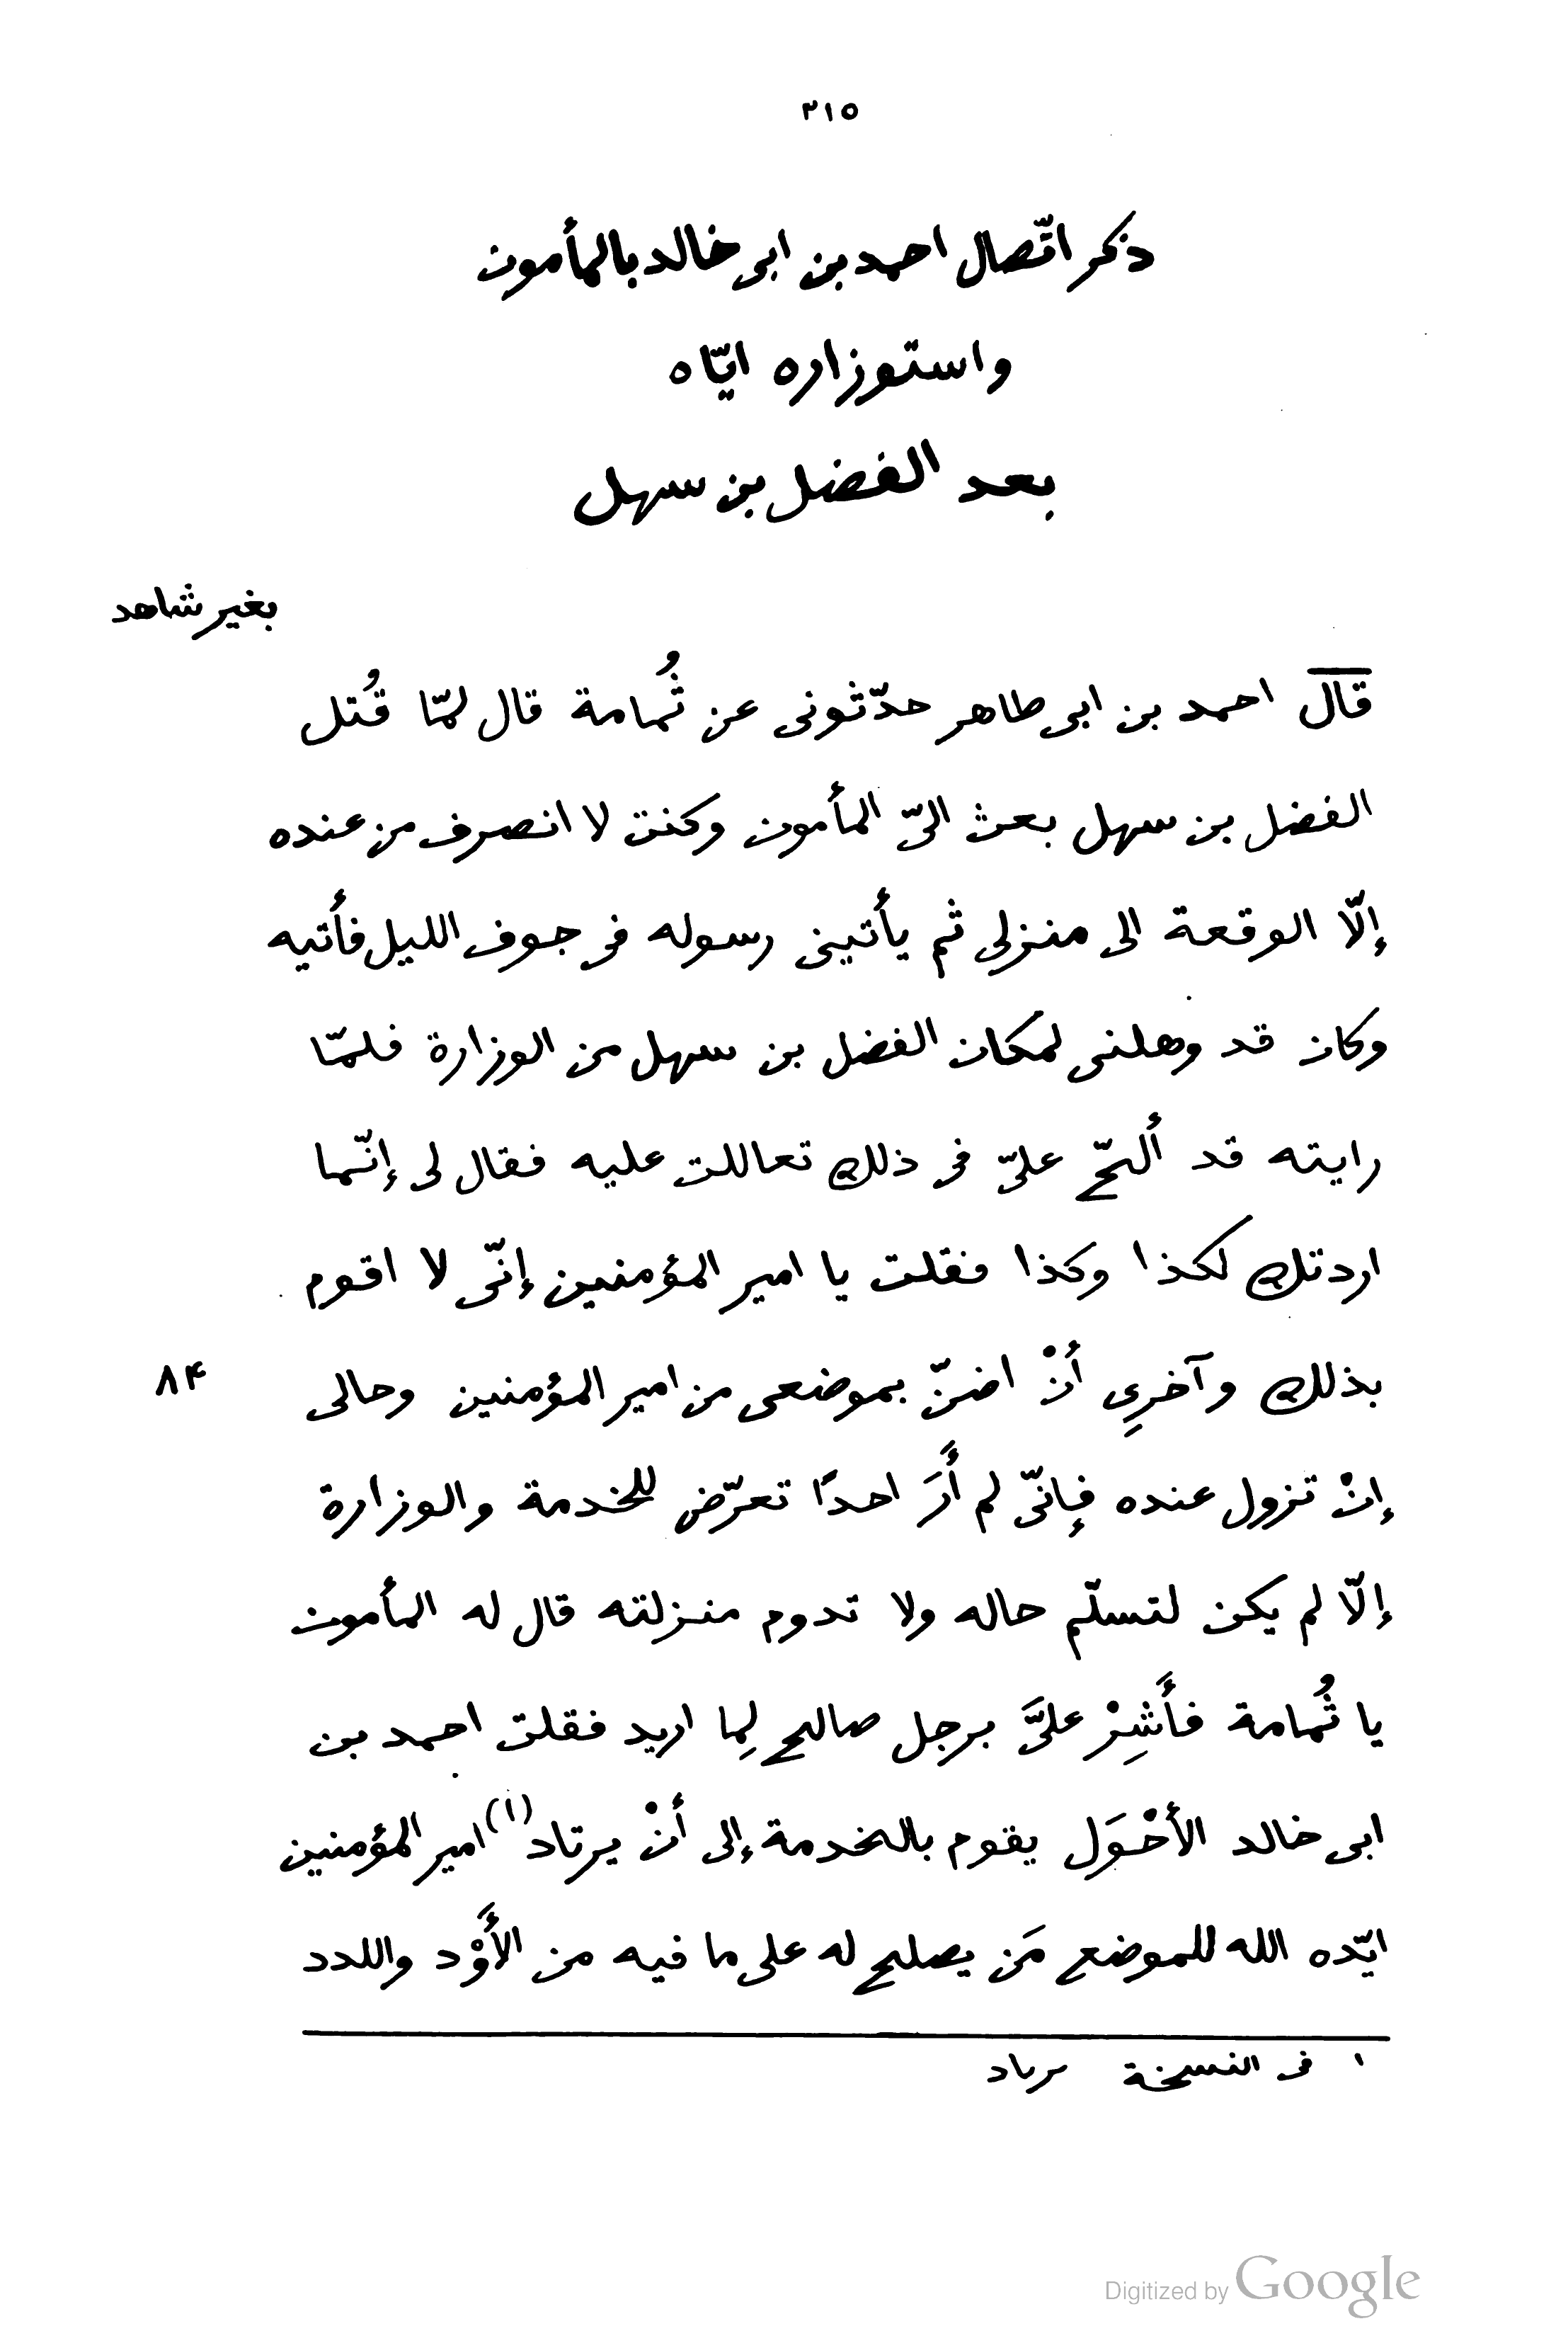 ٢١٥
ذكر اتّصال احمد بن ابى خالد بالمأمون
واستوزاره ايّاه
بعد الفضل بن سهل
بغير شاهد
قال احمد بن ابى طاهر حدّثونى عن ثُمامة قال لمّا قُتل
الفضل بن سهل بعث الىّ المأمون وكنت لا انصرف من عنده
إلّا الوقعة الى منزلى ثم يأتينى رسوله فى جوف الليل فأتيه
وكان قد وهلنى لمكان الفضل بن سهل من الوزارة فلمّا
رايته قد ألحّ علىّ فى ذلك تعاللت عليه فقال لى إنّما
اردتك لكذا وكذا فقلت يا امير المؤمنين إنّى لا اقوم
بذلك وآخرِى أنْ اضنّ بموضعى من امير المؤمنين وحالى
٨۴
إنْ تزول عنده فإنّى لم أَرَ احدًا تعرّض للخدمة والوزارة
إلّا لم يكن لتسلّم حاله ولا تدوم منزلته قال له المأمون
يا ثُمامة فأَشِرْ علىَّ برجل صالح لِما اريد فقلت احمد بن
ابى خالد الأحْوَل يقوم بالخدمة إلى أنْ يرتاد(١) امير المؤمنين
ايّده الله للموضع مَن يصلح له على ما فيه من الأَوْد واللدد
١ فى النسخة مرىاد
Digitized by Google